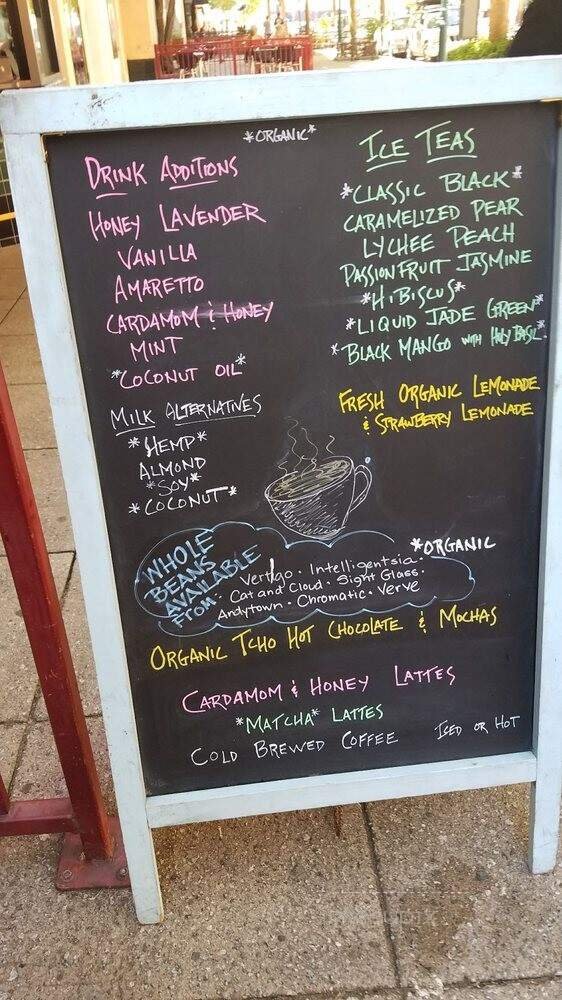 *ORGANIC*
DRINK ADDITIONS
HONEY LAVENDER
VANILLA
AMARETTO
CARDAMOM & HONEY
MINT
*COCONUT OIL*
MILK ALTERNATIVES
*HEMP*
ALMOND
*SOY*
*COCONUT*
ICE TEAS
*CLASSIC BLACK*
CARAMELIZED PEAR
LYCHEE PEACH
PASSION FRUIT JASMINE
*HIBISCUS*
*LIQUID JADE GREEN*
*BLACK MANGO WITH HOLY BASIL*
FRESH ORGANIC LEMONADE
& STRAWBERRY LEMONADE
WHOLE
BEANS
AVAILABLE
FROM:
*ORGANIC
Vertigo · Intelligentsia ·
Cat and Cloud · Sight Glass ·
Andytown · Chromatic · Verve
ORGANIC TCHO HOT CHOCOLATE & MOCHAS
CARDAMOM & HONEY LATTES
*MATCHA* LATTES
COLD BREWED COFFEE ICED OR HOT